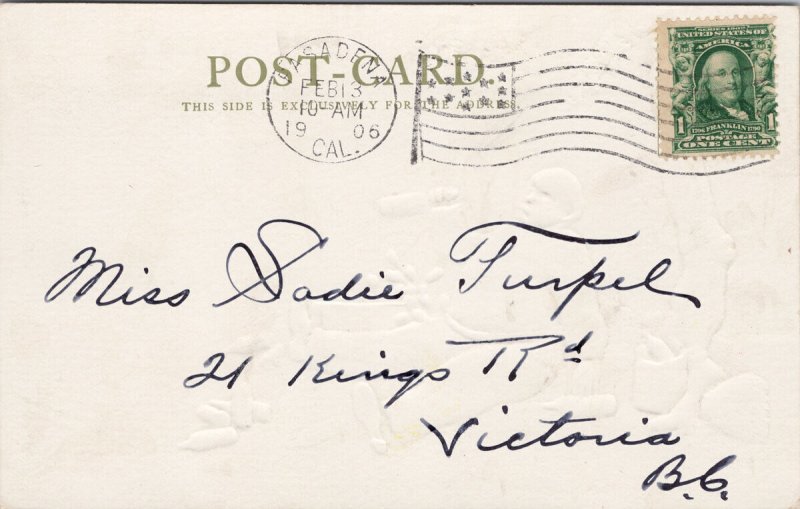 POST-CARD.
THIS SIDE IS EXCLUSIVELY FOR THE ADDRESS.
PASADENA
FEB 13
10 AM
19 06
CAL.
SERIES 1902
UNITED STATES OF
AMERICA
1
1706 FRANKLIN 1790
POSTAGE
ONE CENT
Miss Sadie Turpel
21 Kings Rd
Victoria
B.C.